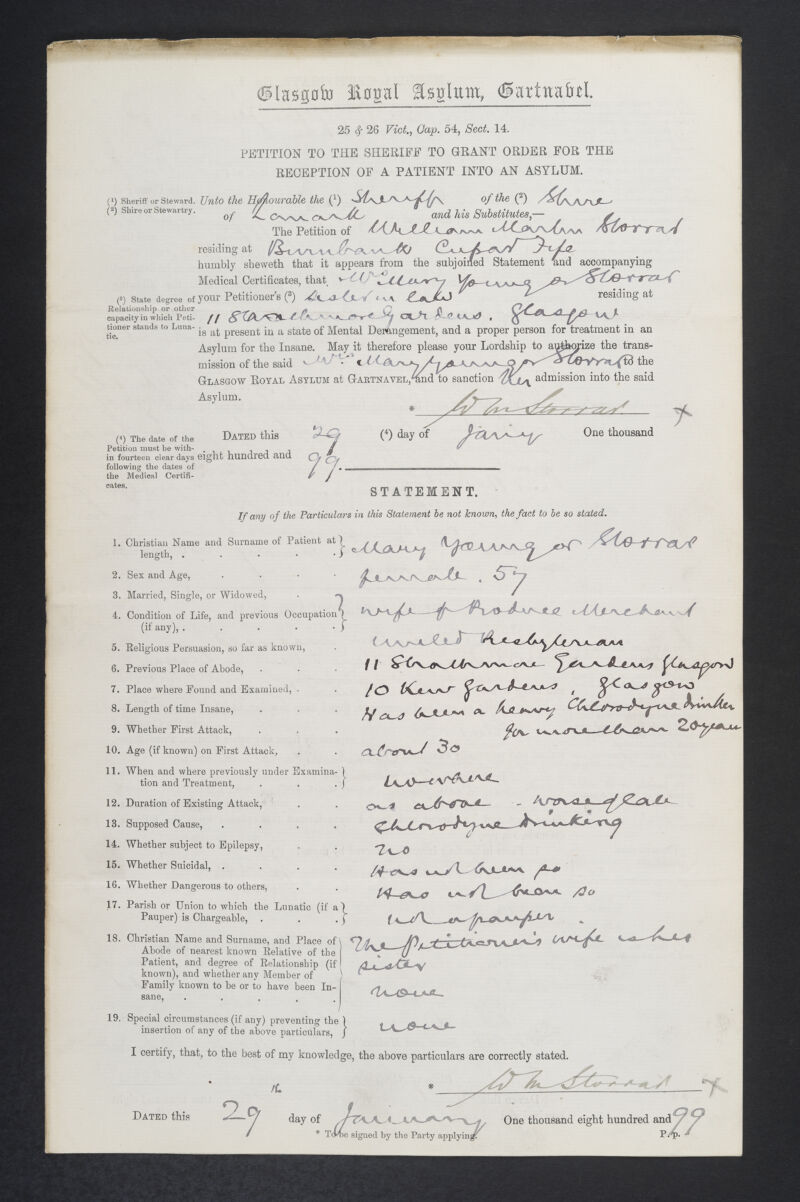 Glasgow Royal Asylum, Gartnavel.
25 & 26 Vict., Cap. 54, Sect. 14.
PETITION TO THE SHERIFF TO GRANT ORDER FOR THE
RECEPTION OF A PATIENT INTO AN ASYLUM.
(1) Sheriff or Steward.
(2) Shire or Stewartry.
Unto the Honourable the (1) Sheriff of the (2) Shire
of Lanark and his Substitutes,—
The Petition of William Martin Storrar
residing at Burnbank Cupar Fife
humbly sheweth that it appears from the subjoined Statement and accompanying
Medical Certificates, that Mrs Mary Young or Storrar
(3) State degree of
Relationship or other
capacity in which Peti-
tioner stands to Luna-
tic.
your Petitioner's (3) Sister in law residing at
11 Strathmore Gardens. Glasgow
is at present in a state of Mental Derangement, and a proper person for treatment in an
Asylum for the Insane. May it therefore please your Lordship to authorize the trans-
mission of the said Mrs Mary Young or Storrar to the
GLASGOW ROYAL ASYLUM AT GARTNAVEL, and to sanction her admission into the said
Asylum.
* W M Storrar x
(4) The date of the
Petition must be with-
in fourteen clear days
following the dates of
the Medical Certifi-
cates.
DATED this 29 (4) day of Jany One thousand
eight hundred and 99.
STATEMENT.
If any of the Particulars in this Statement be not known, the fact to be so stated.
1. Christian Name and Surname of Patient at
length, . Mary Young or Storrar
2. Sex and Age, female. 57
3. Married, Single, or Widowed,
4. Condition of Life, and previous Occupation
(if any), . wife of Produce Merchant
5. Religious Persuasion, so far as known, United Presbyterian
6. Previous Place of Abode, 11 Strathmore Gardens Glasgow
7. Place where Found and Examined, 10 Kew Gardens, Glasgow
8. Length of time Insane, Has been a heavy Chlorodyne drinker
9. Whether First Attack, for more than 20 years
10. Age (if known) on First Attack, about 30
11. When and where previously under Examina-
tion and Treatment, nowhere
12. Duration of Existing Attack, as above - worse of late
13. Supposed Cause, Chlorodyne drinking
14. Whether subject to Epilepsy, no
15. Whether Suicidal, Has not been so
16. Whether Dangerous to others, Has not been so
17. Parish or Union to which the Lunatic (if a
Pauper) is Chargeable, not a pauper.
18. Christian Name and Surname, and Place of
Abode of nearest known Relative of the
Patient, and degree of Relationship (if
known), and whether any Member of
Family known to be or to have been In-
sane,
The Petitioner's wife is her
sister
none
19. Special circumstances (if any) preventing the
insertion of any of the above particulars, none
I certify, that, to the best of my knowledge, the above particulars are correctly stated.
* W M Storrar x
DATED this 29th day of January One thousand eight hundred and 99
* To be signed by the Party applying. P.p.